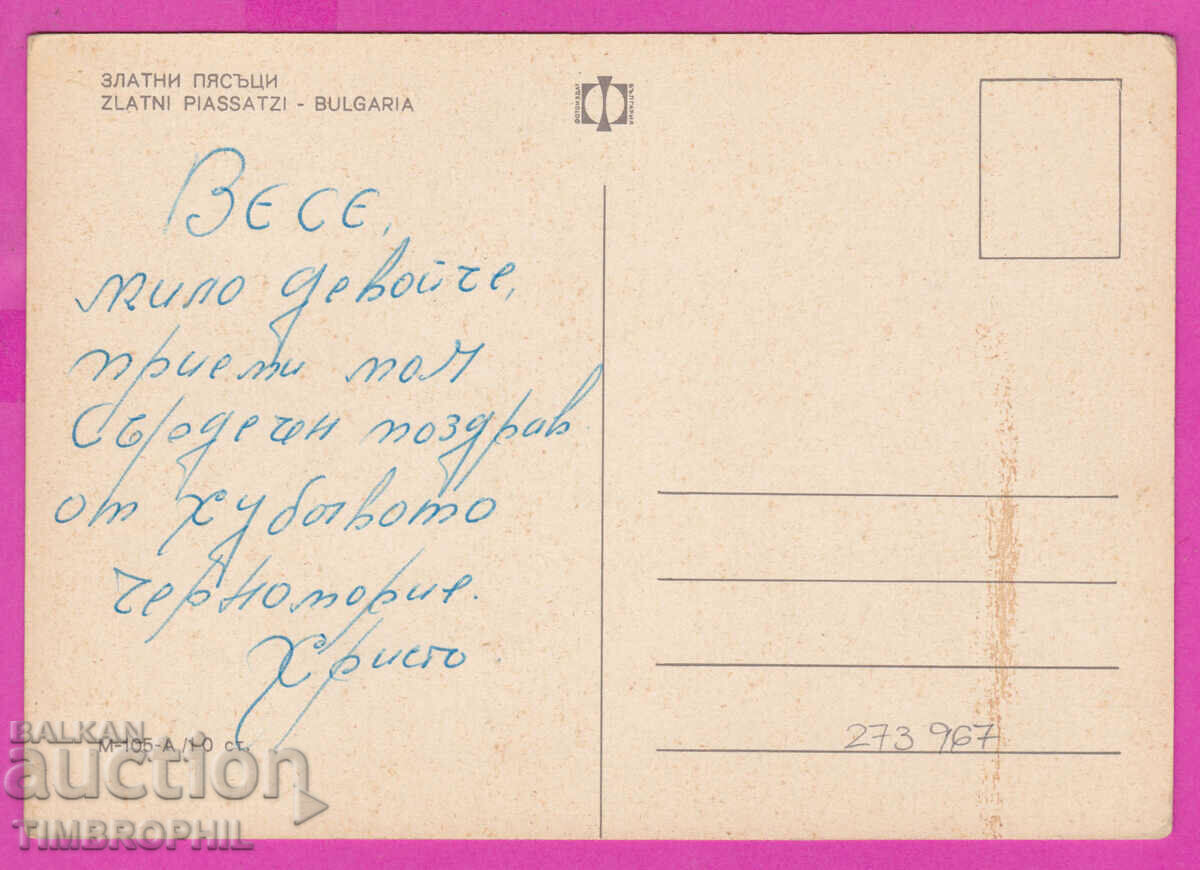 ЗЛАТНИ ПЯСЪЦИ
ZLATNI PIASSATZI - BULGARIA
ФОТОИЗДАТ
БЪЛГАРИЯ
Весе,
мило девойче,
приеми моя
сърдечен поздрав
от хубавото
черноморие.
Христо
М-105-А /10 ст.
273 967
BALKAN
auction
TIMBROPHIL